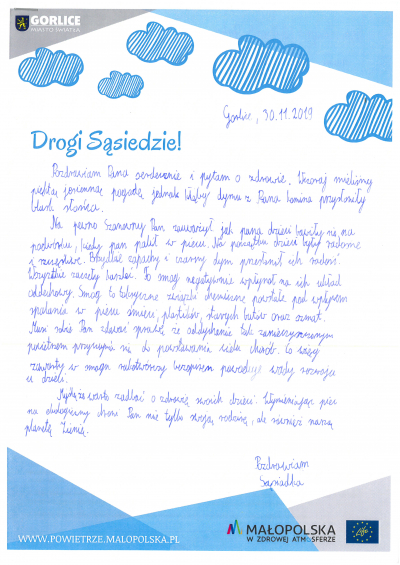 GORLICE
MIASTO ŚWIATŁA
Gorlice, 30.11.2019
Drogi Sąsiedzie!
Pozdrawiam Pana serdecznie i pytam o zdrowie. Wczoraj mieliśmy
piękną jesienną pogodę, jednak kłęby dymu z Pana komina przysłoniły
blask słońca.
Na pewno Szanowny Pan zauważył jak pana dzieci bawiły się na
podwórku, kiedy pan palił w piecu. Na początku dzieci były radosne
i szczęśliwe. Brzydkie zapachy i czarny dym przesłonił ich radość.
Wszystkie zaczęły kaszleć. To smog negatywnie wpłynął na ich układ
oddechowy. Smog to toksyczne związki chemiczne powstałe pod wpływem
spalania w piecu śmieci, plastików, starych butów oraz szmat.
Musi sobie Pan zdawać sprawę że oddychanie tak zanieczyszczonym
powietrzem przyczynia się do powstawania wielu chorób. Co więcej
zawarty w smogu rakotwórczy benzopiren powoduje wady rozwoju
u dzieci.
Myślę, że warto zadbać o zdrowie swoich dzieci. Wymieniając piec
na ekologiczny chroni Pan nie tylko swoją rodzinę, ale również naszą
planetę Ziemię.
Pozdrawiam
Sąsiadka
WWW.POWIETRZE.MALOPOLSKA.PL
MAŁOPOLSKA
W ZDROWEJ ATMOSFERZE